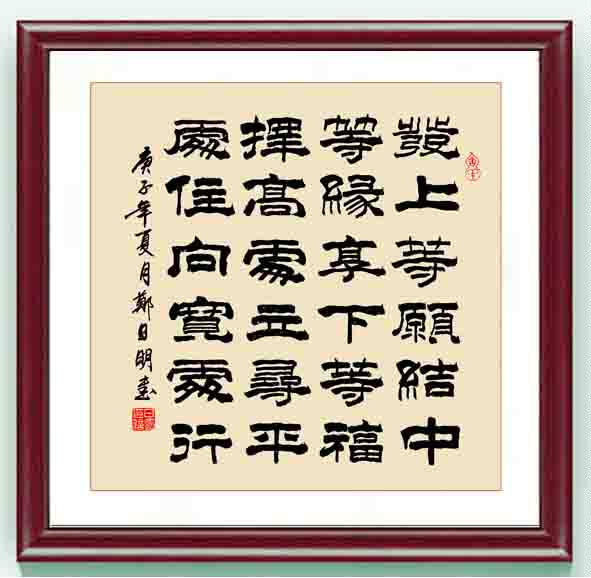 發上等願結中
等緣享下等福
擇高處立尋平
處住向寬處行
庚子年夏月鄭日明書